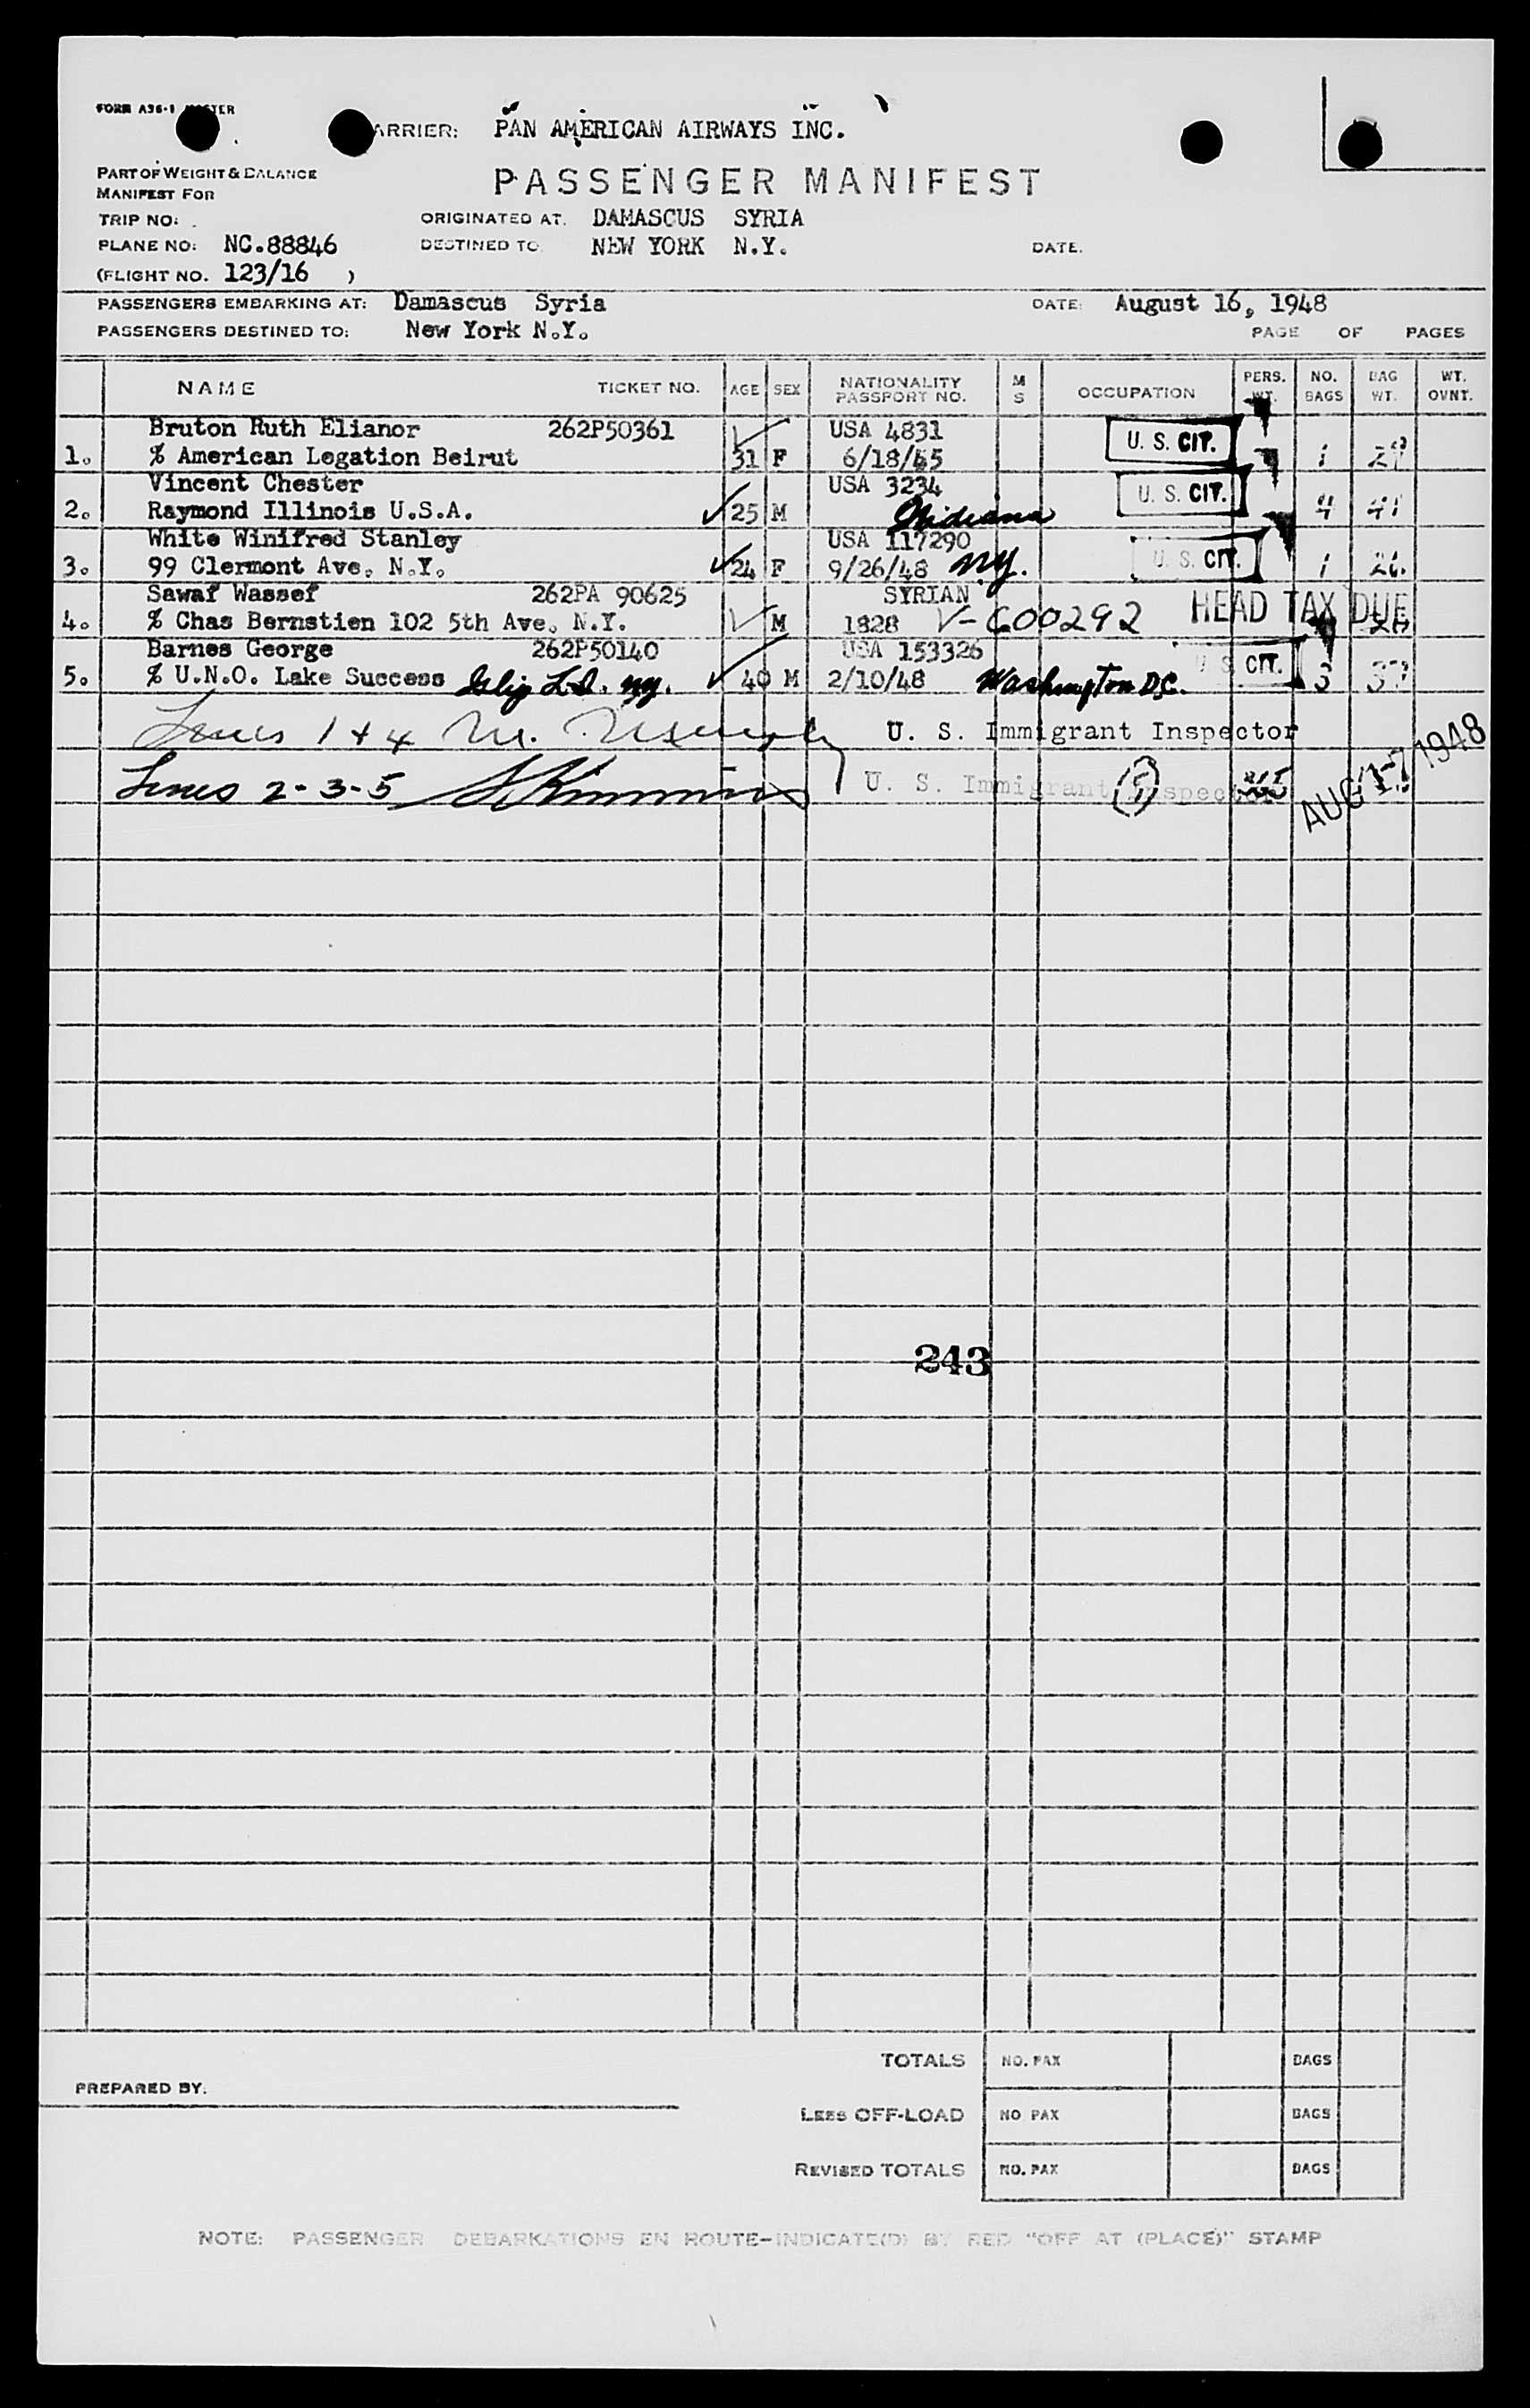 FORM A36-1 MASTER
CARRIER: PAN AMERICAN AIRWAYS INC.
PART OF WEIGHT & BALANCE
MANIFEST FOR
PASSENGER MANIFEST
TRIP NO:
ORIGINATED AT. DAMASCUS SYRIA
PLANE NO: NC.88846
DESTINED TO NEW YORK N.Y.
DATE.
(FLIGHT NO. 123/16 )
PASSENGERS EMBARKING AT: Damascus Syria
DATE: August 16, 1948
PASSENGERS DESTINED TO: New York N.Y.
PAGE OF PAGES
NAME TICKET NO. AGE SEX NATIONALITY PASSPORT NO. M S OCCUPATION PERS. WT. NO. BAGS BAG WT. WT. OVNT.
Bruton Ruth Elianor 262P50361 USA 4831 U. S. CIT.
1. % American Legation Beirut 31 F 6/18/45 1
Vincent Chester USA 3234 U. S. CIT.
2. Raymond Illinois U.S.A. 25 M Indiana 4 41
White Winifred Stanley USA 117290
3. 99 Clermont Ave. N.Y. 24 F 9/26/48 N.Y. U. S. CIT. 1 26.
Sawaf Wassef 262PA 90625 SYRIAN HEAD TAX DUE
4. % Chas Bernstien 102 5th Ave. N.Y. M 1828 V-600292
Barnes George 262P50140 USA 153326 U S CIT.
5. % U.N.O. Lake Success L.I. N.Y. 40 M 2/10/48 Washington D.C. 3 37
Lines 1 + 4 M. U. S. Immigrant Inspector
Lines 2-3-5 U. S. Immigrant Inspector
AUG 17 1948
243
TOTALS NO. PAX BAGS
PREPARED BY.
LESS OFF-LOAD NO PAX BAGS
REVISED TOTALS NO. PAX BAGS
NOTE: PASSENGER DEBARKATIONS EN ROUTE-INDICATE(D) BY RED "OFF AT (PLACE)" STAMP